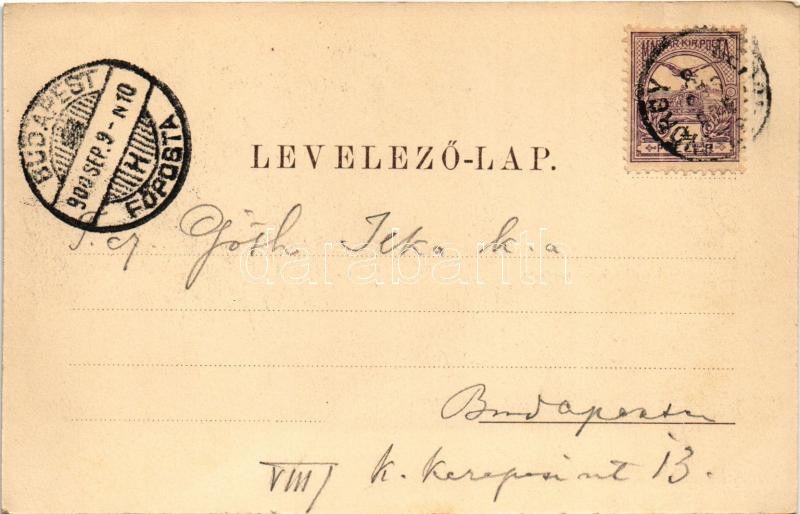 MAGYAR KIR. POSTA
BUDAPEST
900 SEP. 9 - N 10
H
FŐPOSTA
LEVELEZŐ-LAP.
darabanth
Góth Ilka k.a
Budapesten
VIII k. Kerepesi út 13.